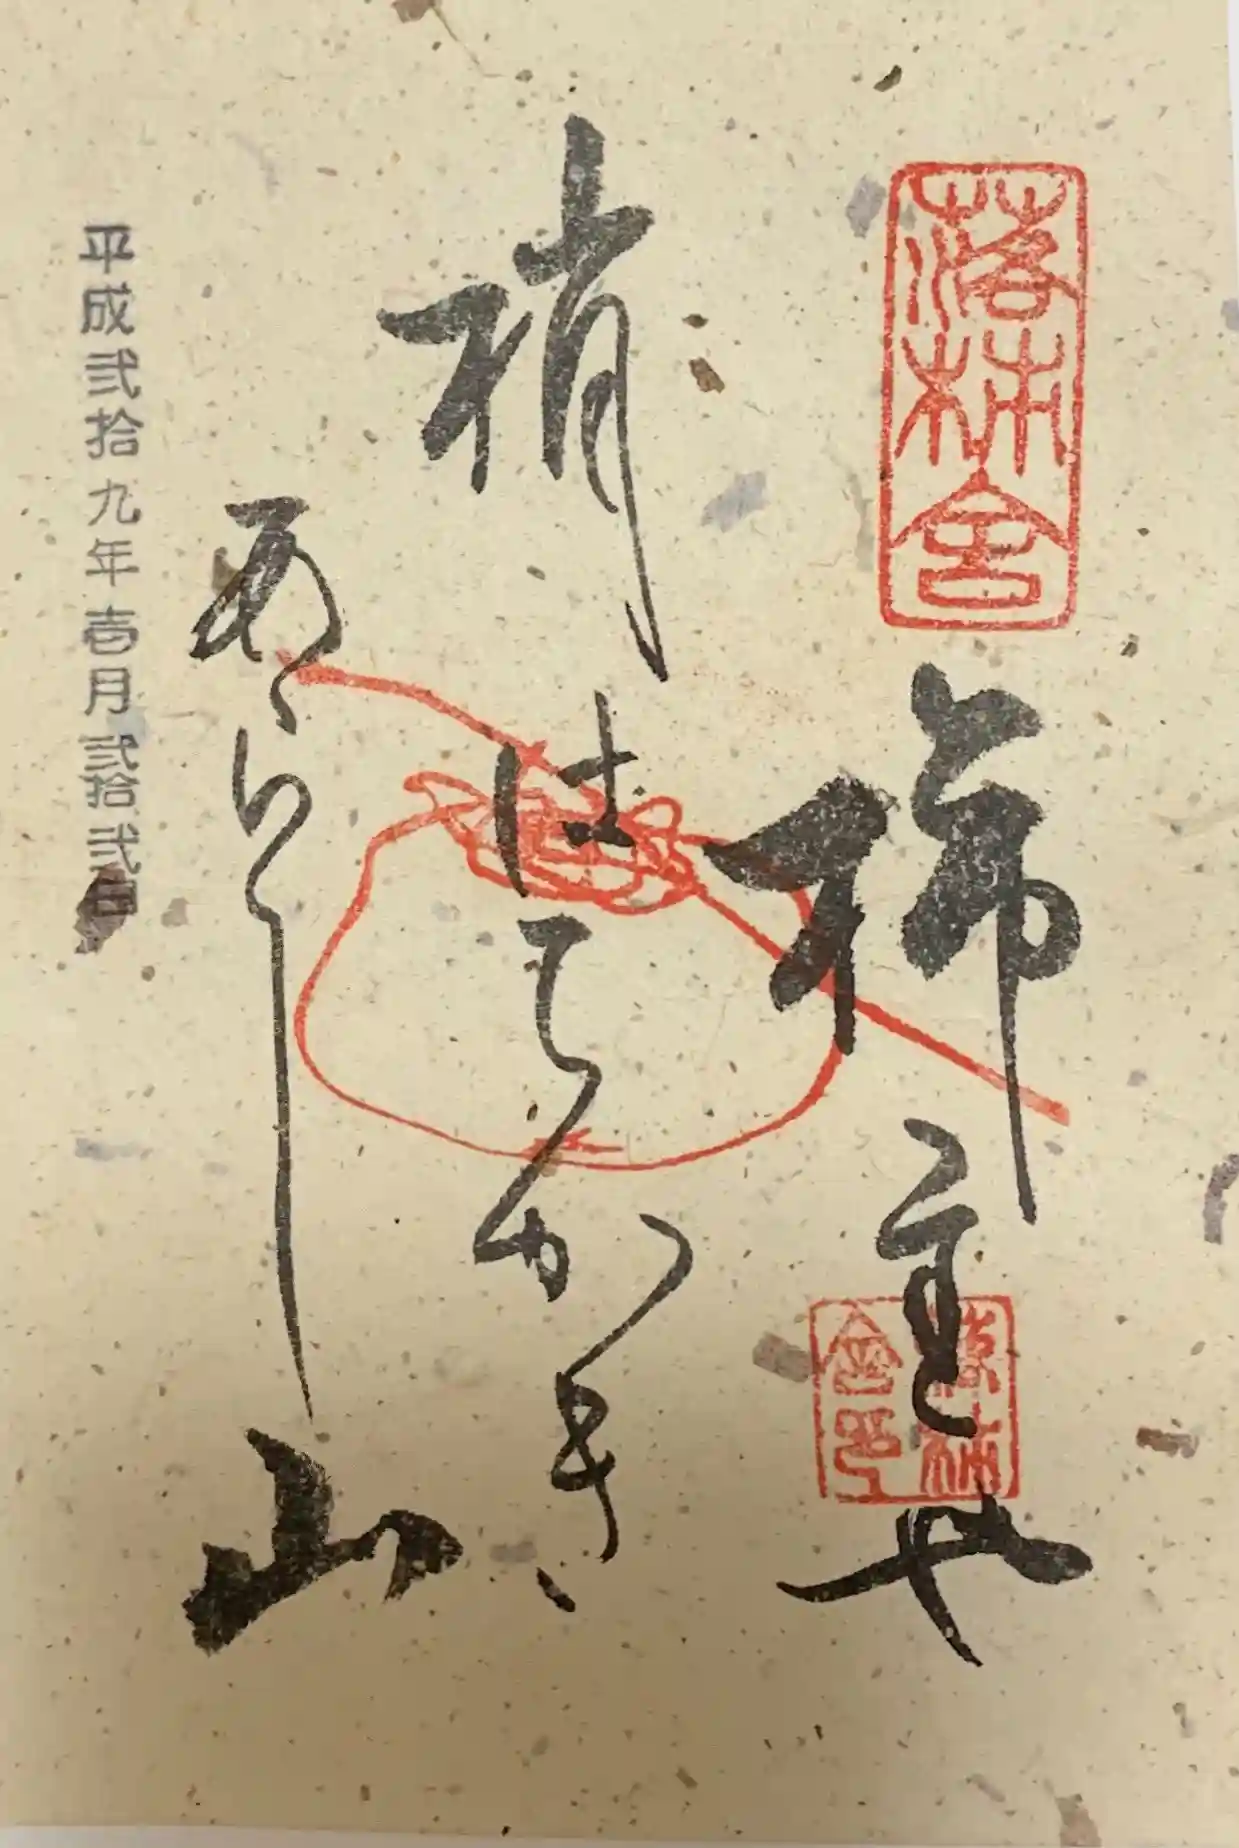 落柿舎
柿主や
落柿舎印
梢はちかき
あらし山
平成弐拾九年壱月弐拾弐日